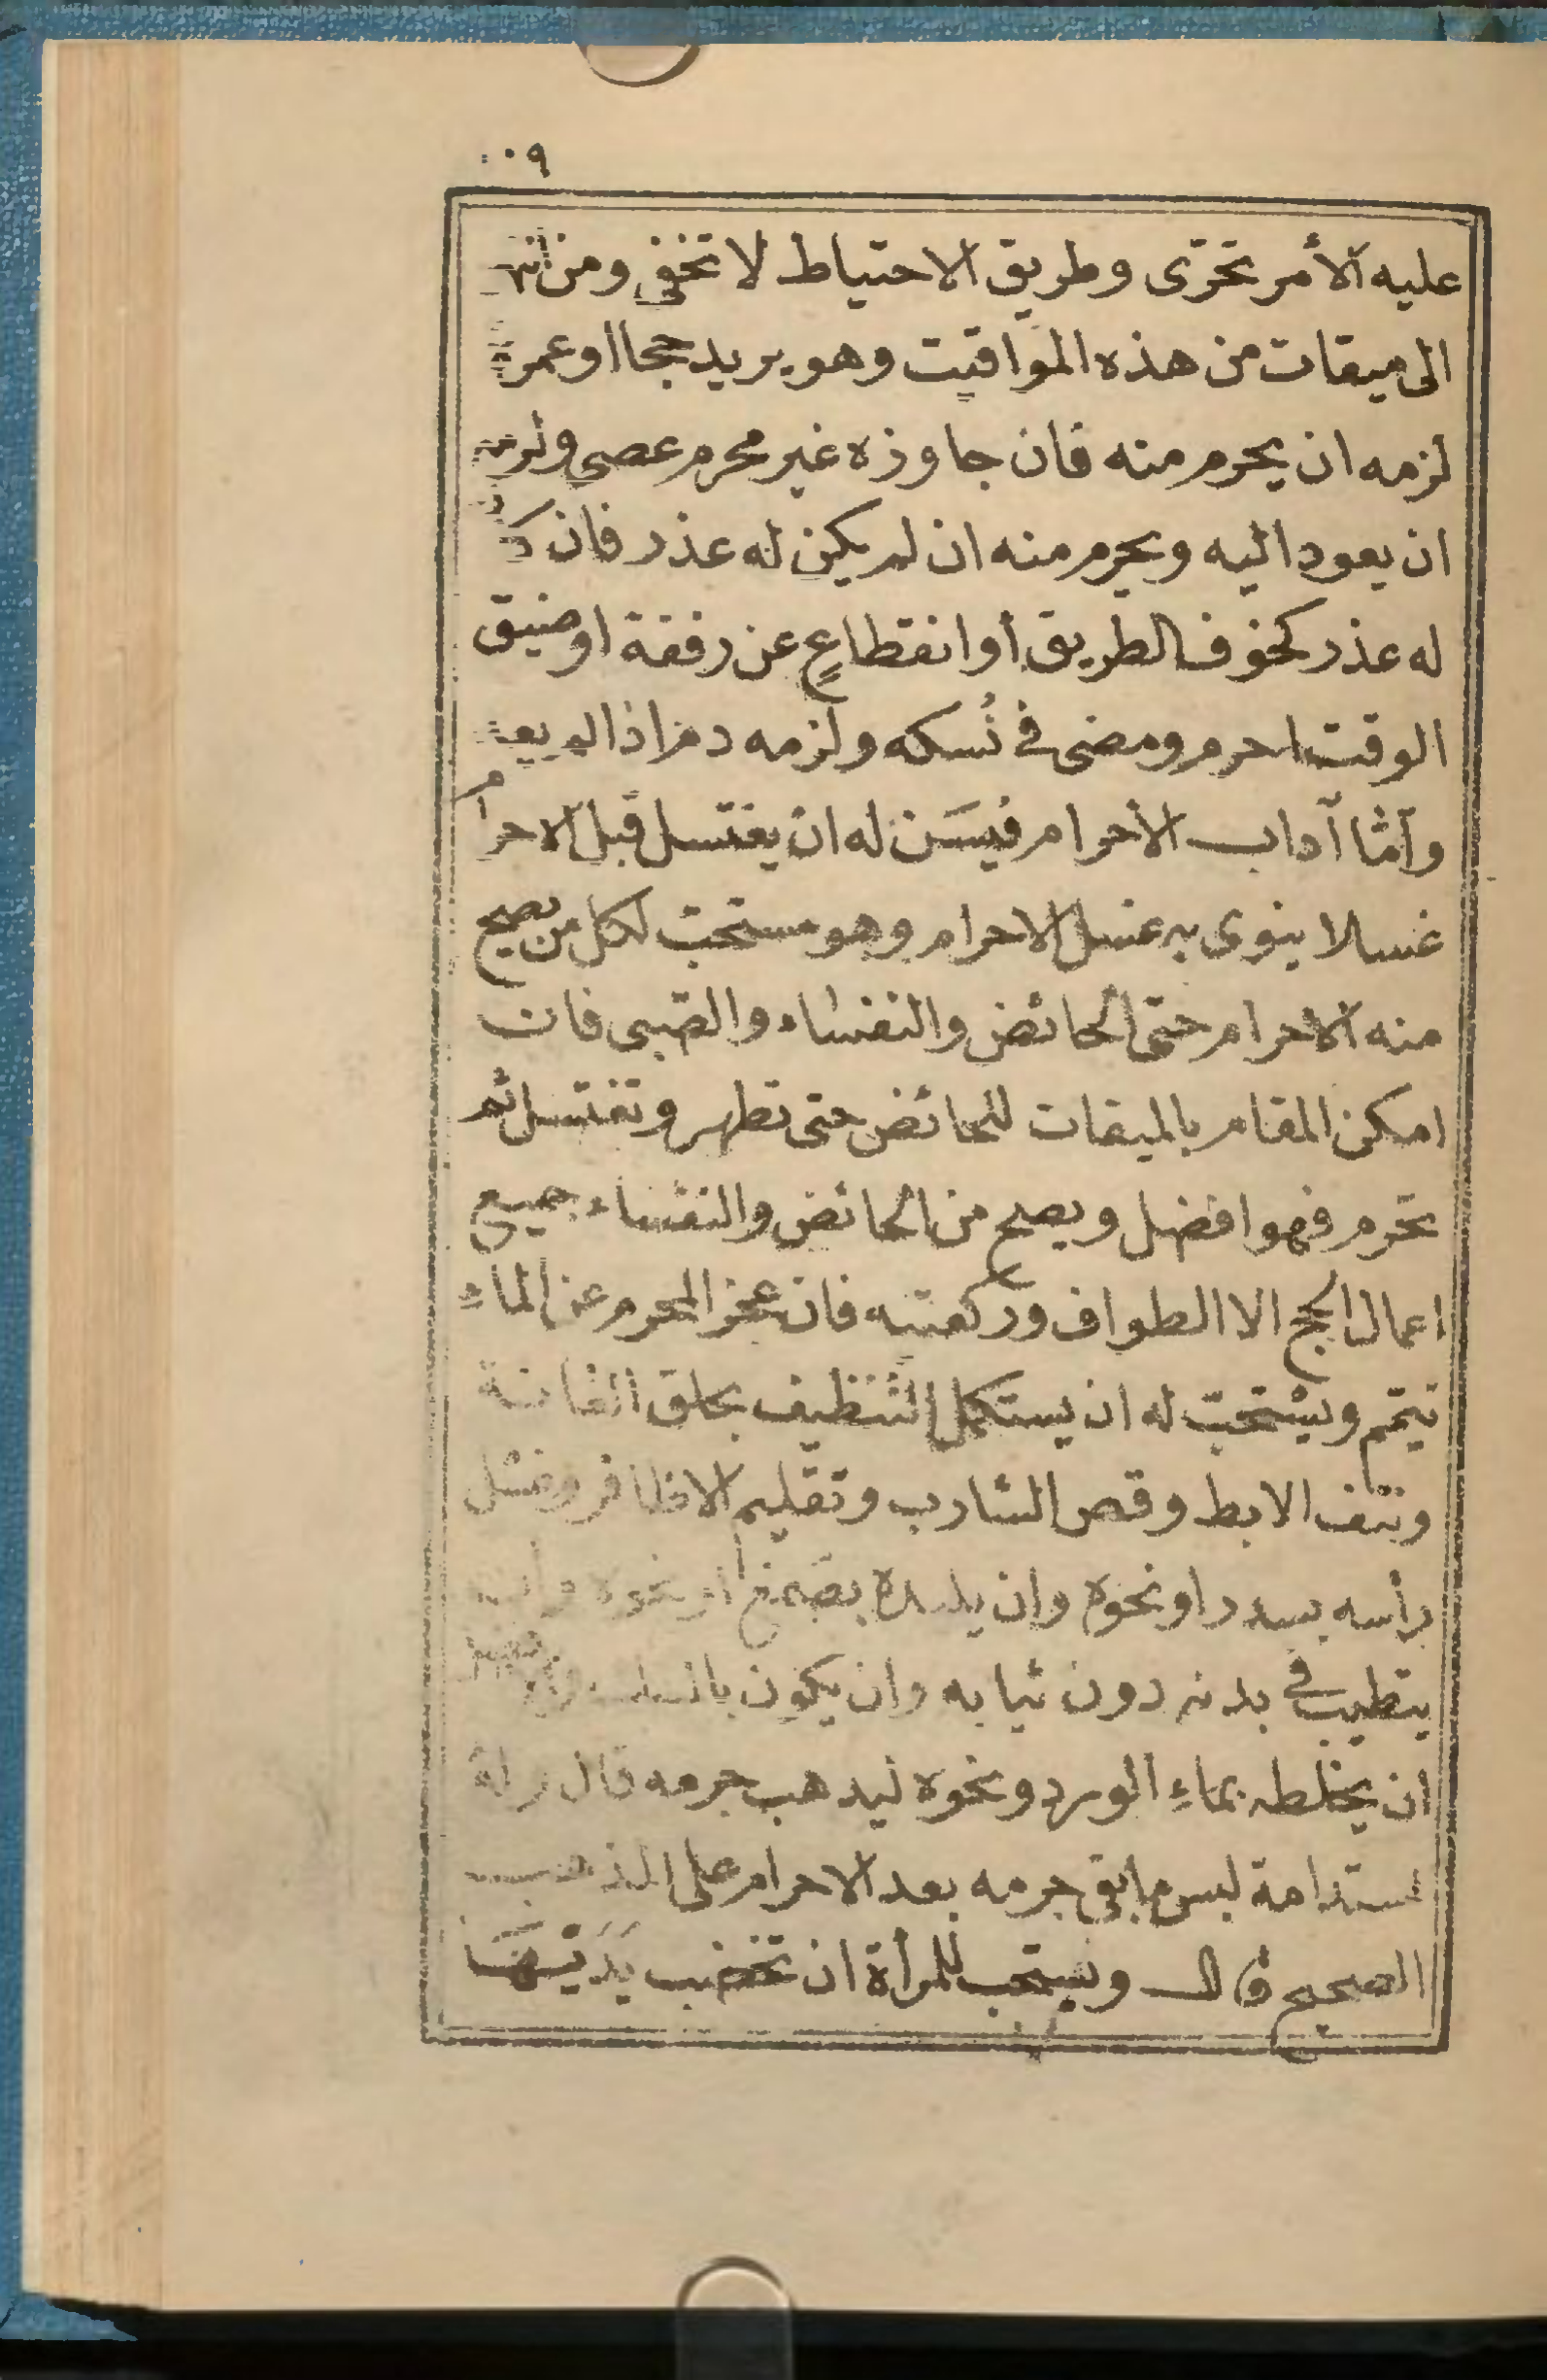 ٠٠٩
عليه الأمر تحرّى وطريق الاحتياط لا تخفى ومن
الى ميقات من هذه المواقيت وهو يريد حجا او عمرة
لزمه ان يحرم منه فان جاوزه غير محرم عصى ولزمه
ان يعود اليه ويحرم منه ان لم يكن له عذر فان
له عذر كخوف الطريق أو انقطاعٍ عن رفقة او ضيق
الوقت احرم ومضى في نُسكه ولزمه دم اذا لم يعد
وأمّا آداب الأحرام فيسَن له ان يغتسل قبل الاحرام
غسلا ينوى به غسل الاحرام وهو مستحبّ لكل من يصح
منه الاحرام حتى الحائض والنفساء والصّبى فان
امكن المقام بالميقات للحائض حتى تطهر وتغتسل ثم
تحرم فهو افضل ويصح من الحائض والنفساء جميع
اعمال الحج الا الطواف وركعتيه فان عجز المحرم عن الماءِ
تيمّم ويستحبّ له ان يستكمل التّنظيف بحلق العانة
ونتف الابط وقص الشارب وتقليم الاظافر وغسل
برأسه بسدر او نحوه وان يلبده بصَمغ او نحوه وان
يتطيب في بدنه دون ثيابه وان يكون بالمسك
ان يخلطه بماءِ الورد ونحوه ليذهب جرمه قال وله
ستدامة لبس ما بقى جرمه بعد الاحرام على المذهب
الصحيح قال ويستحب للمرأة ان تخضب يَدَيْهَا